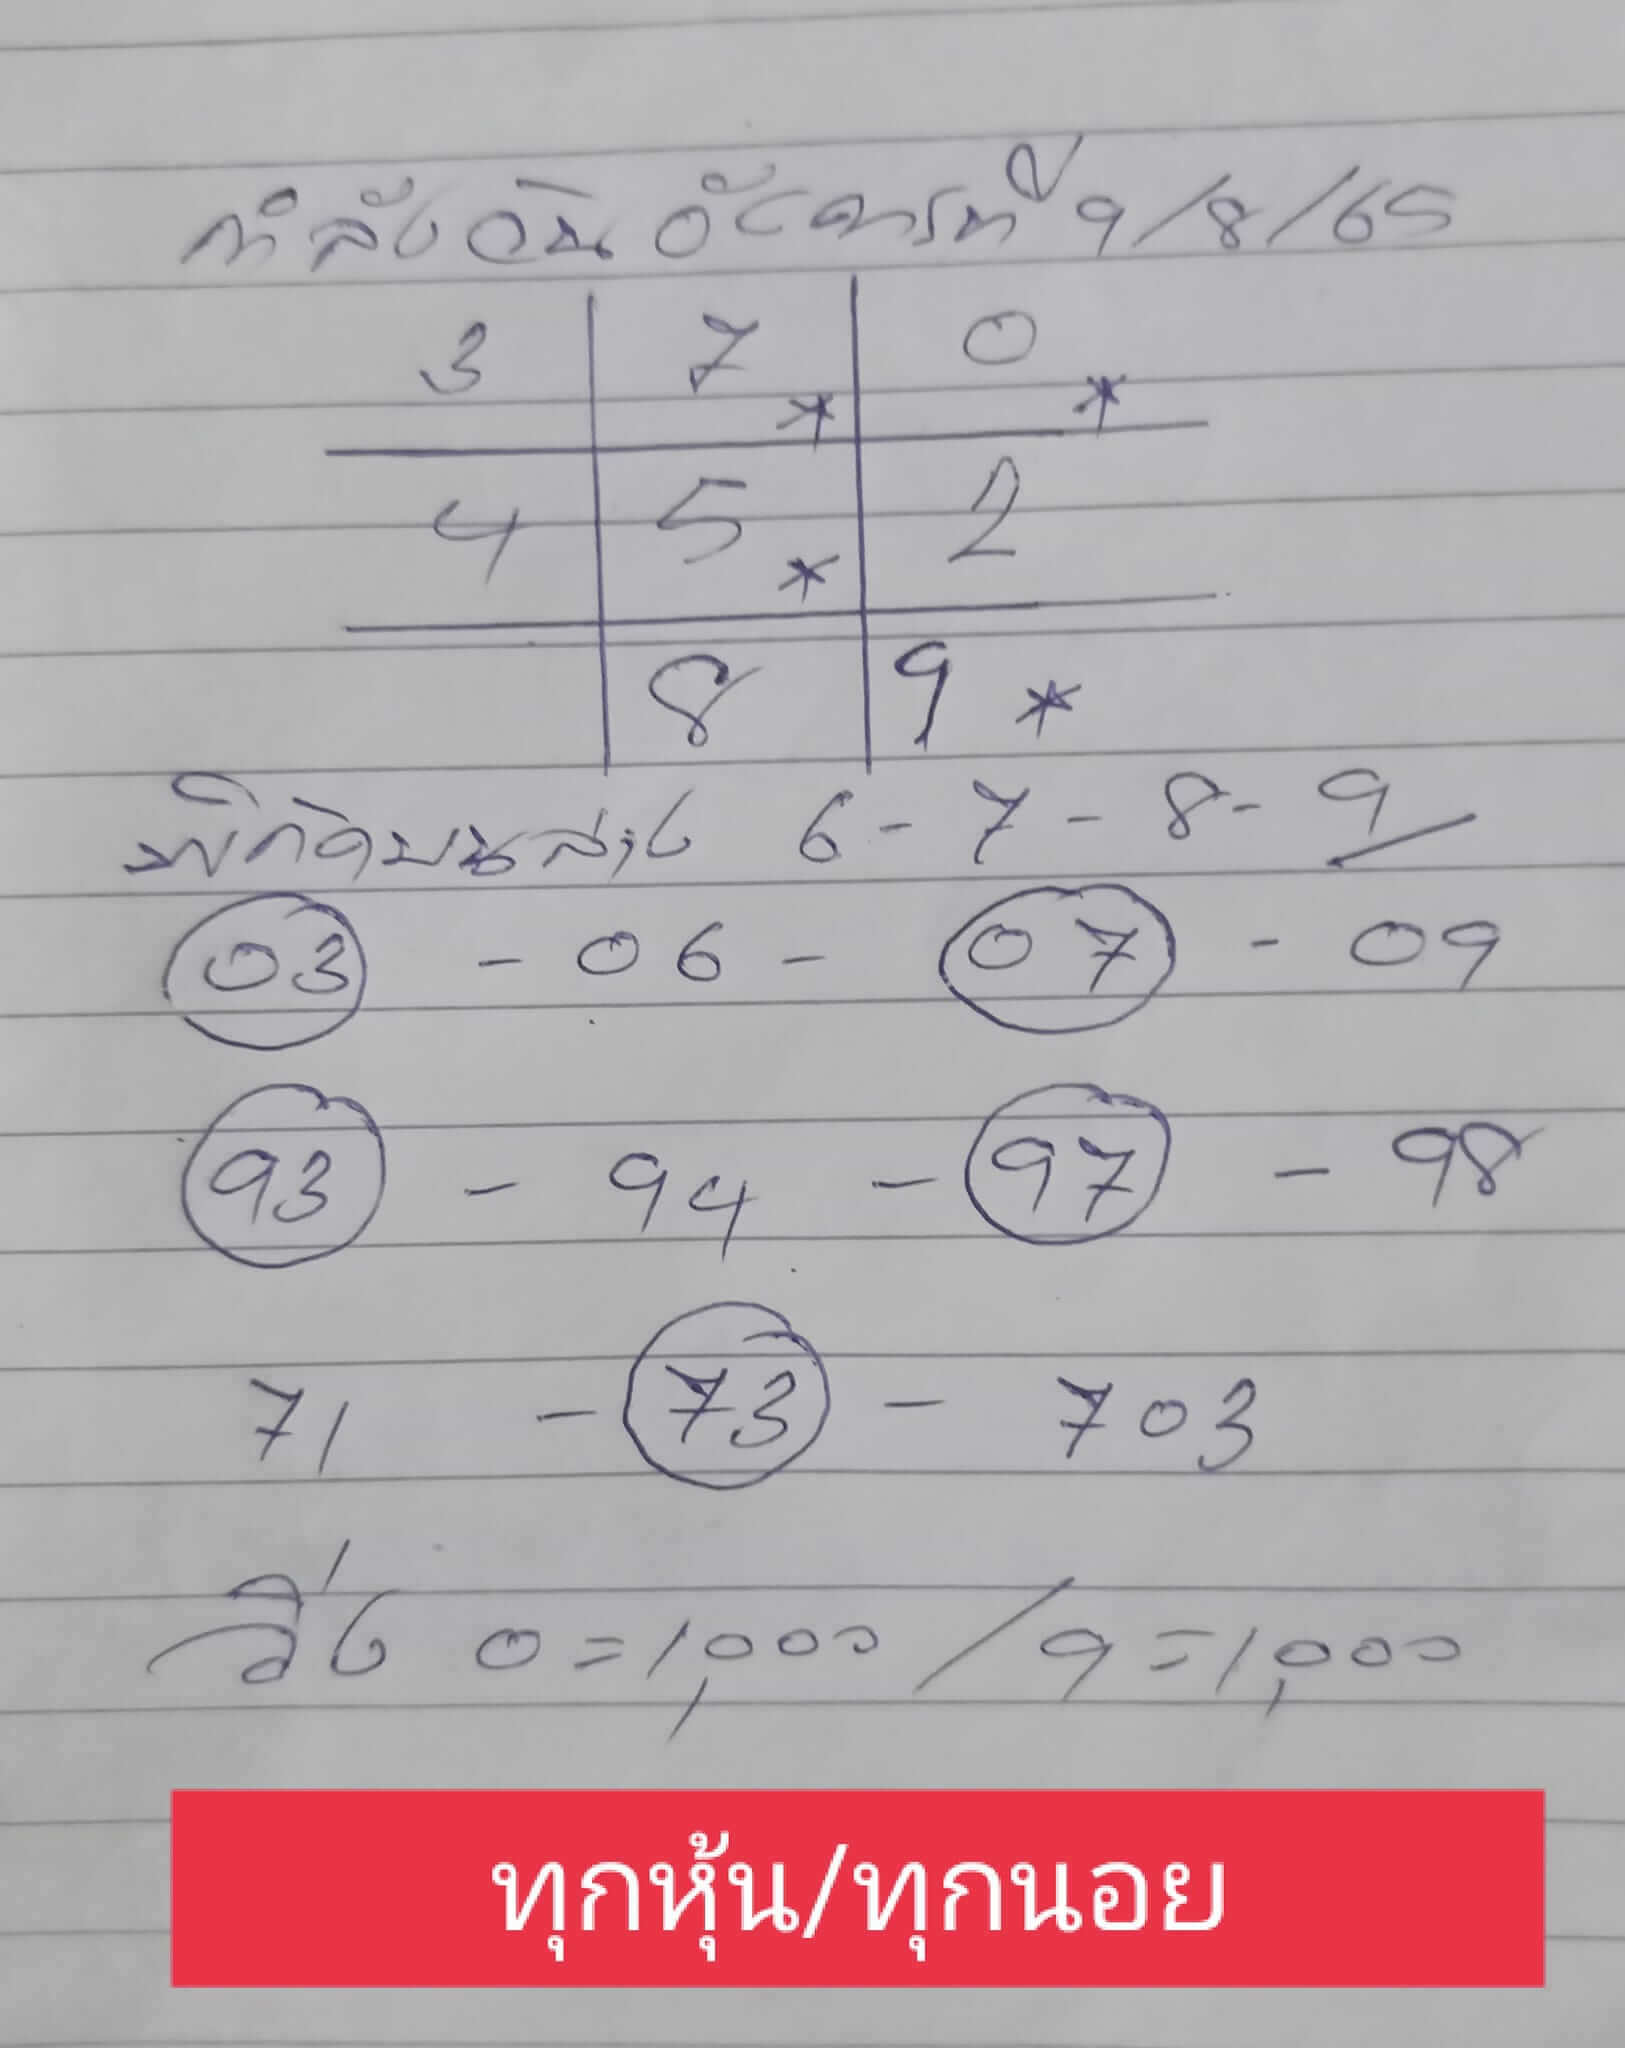 กำลังวันอังคารที่ 9/8/65
3 7 0
* *
4 5 2
*
8 9 *
พิกัดบนล่าง 6-7-8-9
03 - 06 - 07 - 09
93 - 94 - 97 - 98
71 - 73 - 703
วิ่ง 0=1,000/9=1,000
ทุกหุ้น/ทุกนอย